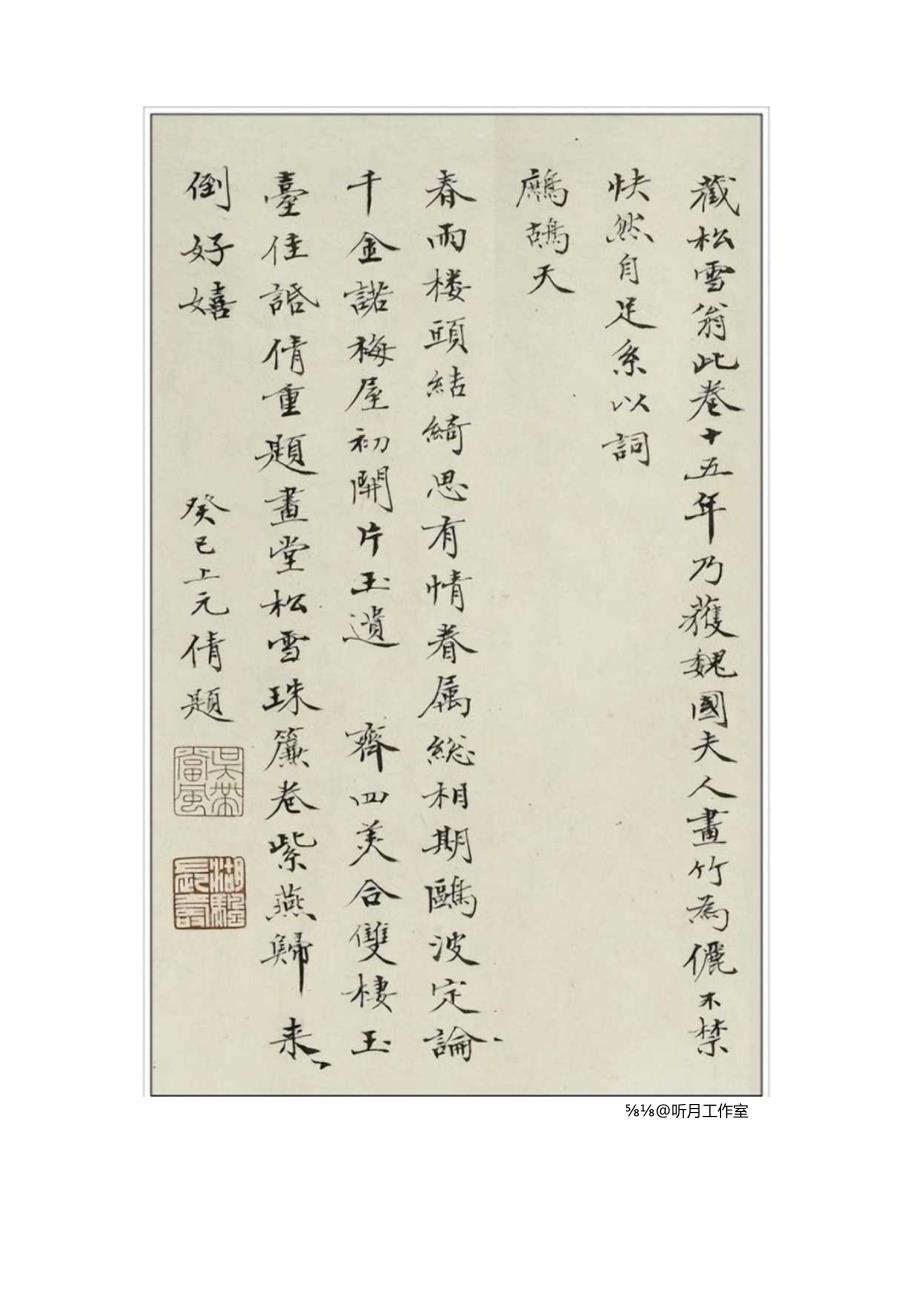 藏松雪翁此卷十五年乃獲魏國夫人畫竹為儷不禁
快然自足系以詞
鷓鴣天
春雨楼頭結綺思有情眷属総相期鷗波定論
千金諾梅屋初開片玉遺　齊四美合雙棲玉
臺佳話倩重題畫堂松雪珠簾卷紫燕歸来
倒好嬉　癸巳上元倩題
吳帶當風
⅝⅛@听月工作室